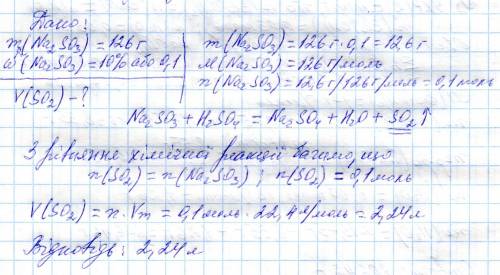 Дано:
m(Na₂SO₃) = 126 г
ω(Na₂SO₃) = 10% або 0,1
V(SO₂) - ?
m(Na₂SO₃) = 126 г · 0,1 = 12,6 г
M(Na₂SO₃) = 126 г/моль
n(Na₂SO₃) = 12,6 г/126 г/моль = 0,1 моль
Na₂SO₃ + H₂SO₄ = Na₂SO₄ + H₂O + SO₂↑
З рівняння хімічної реакції бачимо, що
n(SO₂) = n(Na₂SO₃) ; n(SO₂) = 0,1 моль
V(SO₂) = n · Vm = 0,1 моль · 22,4 л/моль = 2,24 л
Відповідь: 2,24 л